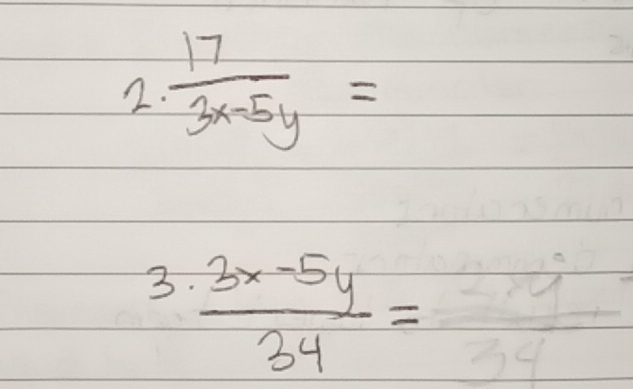 2. 17/3x-5y =
3. 3x-5y/34 =